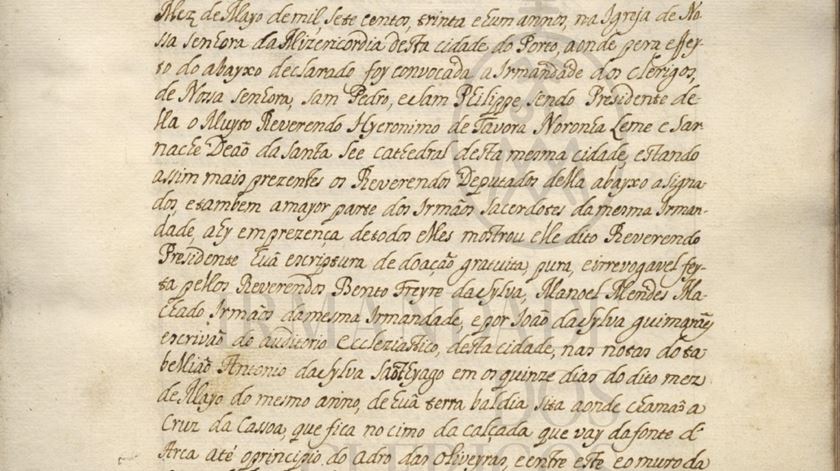 Mez de Mayo de mil sete centos, trinta e hum annos, na Igreja de No-
ssa Senhora da Mizericordia desta cidade do Porto, aonde pera effey-
to do abayxo declarado foy convocada a Irmandade dos clerigos,
de Nossa Senhora, Sam Pedro, e Sam Philippe, sendo Presidente de-
lla o Muyto Reverendo Hyeronimo de Tavora Noronha Leme e Sar-
nache Deão da Santa See cathedral desta mesma cidade, estando
assim mais prezentes os Reverendos Deputados della abayxo asigna-
dos, e tambem a mayor parte dos Irmãos Sacerdotes da mesma Irman-
dade, ahy em prezença de todos elles mostrou elle dito Reverendo
Presidente huã escriptura de doação gratuita, pura, e irrevogavel fey-
ta pellos Reverendos Bento Freyre da Sylva, Manoel Mendes Ma-
chado Irmãos da mesma Irmandade, e por João da Sylva guimarães
escrivão do auditorio Eccleziastico, desta cidade, nas notas do ta
bellião Antonio da Sylva Santhyago em os quinze dias do dito mez
de Mayo do mesmo anno, de huã terra baldia sita aonde chamão a
Cruz da Cassoa, que fica no cimo da calçada que vay da fonte d'
Arca até o principio do adro das Oliveyras, e entre este e o muro da
IRMANDADE
DOS
CLÉRIGOS